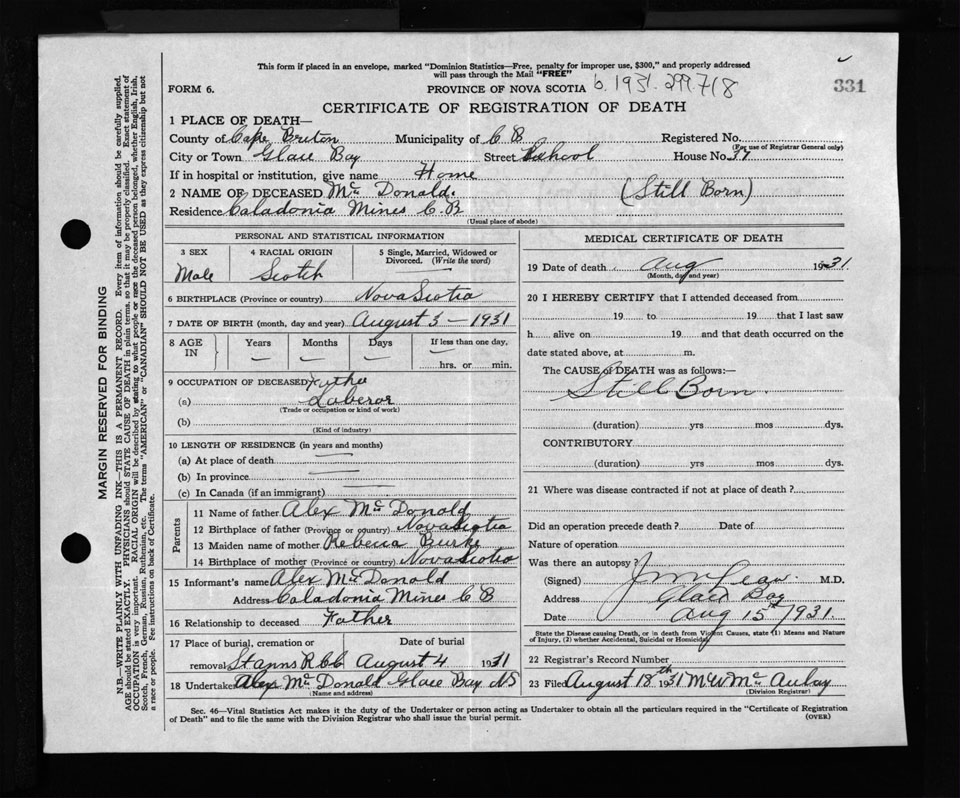 This form if placed in an envelope, marked "Dominion Statistics—Free, penalty for improper use, $300," and properly addressed
will pass through the Mail "FREE"
FORM 6.
PROVINCE OF NOVA SCOTIA
b. 1931. 299718
331
CERTIFICATE OF REGISTRATION OF DEATH
1 PLACE OF DEATH—
County of Cape Breton Municipality of C B Registered No.
(For use of Registrar General only)
City or Town Glace Bay Street School House No. 37
If in hospital or institution, give name Home
2 NAME OF DECEASED Mc Donald. (Still Born)
Residence Caladonia Mines C.B
(Usual place of abode)
PERSONAL AND STATISTICAL INFORMATION
3 SEX 4 RACIAL ORIGIN 5 Single, Married, Widowed or
Divorced. (Write the word)
Male Scotch —
6 BIRTHPLACE (Province or country) Nova Scotia
7 DATE OF BIRTH (month, day and year) August 3 – 1931
8 AGE IN Years Months Days If less than one day.
— — — —
hrs. or min.
9 OCCUPATION OF DECEASED Father
(a) Laberor
(Trade or occupation or kind of work)
(b)
(Kind of industry)
10 LENGTH OF RESIDENCE (in years and months)
(a) At place of death —
(b) In province —
(c) In Canada (if an immigrant) —
Parents
11 Name of father Alex Mc Donald
12 Birthplace of father (Province or country) Nova Scotia
13 Maiden name of mother Rebecca Burke
14 Birthplace of mother (Province or country) Nova Scotia
15 Informant's name Alex Mc Donald
Address Caladonia Mines C B
16 Relationship to deceased Father
17 Place of burial, cremation or Date of burial
removal Stanns August 4 1931
18 Undertaker Alex Mc Donald Glace Bay NS
(Name and address)
MEDICAL CERTIFICATE OF DEATH
19 Date of death Aug 1931
(Month, day and year)
20 I HEREBY CERTIFY that I attended deceased from
19 to 19 that I last saw
h alive on 19 and that death occurred on the
date stated above, at m.
The CAUSE of DEATH was as follows:—
Still Born.
(duration) yrs mos dys.
CONTRIBUTORY
(duration) yrs mos dys.
21 Where was disease contracted if not at place of death?
Did an operation precede death? Date of
Nature of operation
Was there an autopsy?
(Signed) M.D.
Address Glace Bay
Date Aug 15th 1931.
State the Disease causing Death, or in death from Violent Causes, state (1) Means and Nature
of Injury, (2) whether Accidental, Suicidal or Homicidal
22 Registrar's Record Number
23 Filed August 18th 1931 M W Mc Aulay
(Division Registrar)
Sec. 46—Vital Statistics Act makes it the duty of the Undertaker or person acting as Undertaker to obtain all the particulars required in the "Certificate of Registration
of Death" and to file the same with the Division Registrar who shall issue the burial permit.
(OVER)
MARGIN RESERVED FOR BINDING
N.B.—WRITE PLAINLY WITH UNFADING INK—THIS IS A PERMANENT RECORD. Every item of information should be carefully supplied.
AGE should be stated EXACTLY. PHYSICIANS should STATE CAUSE OF DEATH in plain terms, so that it may be properly classified. Exact statement of
OCCUPATION is very important. RACIAL ORIGIN will be described by stating to what people or race the deceased person belonged, whether English, Irish,
Scotch, French, German, Russian, Ruthenian, etc. The terms "AMERICAN" or "CANADIAN" SHOULD NOT BE USED as they express citizenship but not
a race or people. See instructions on back of Certificate.